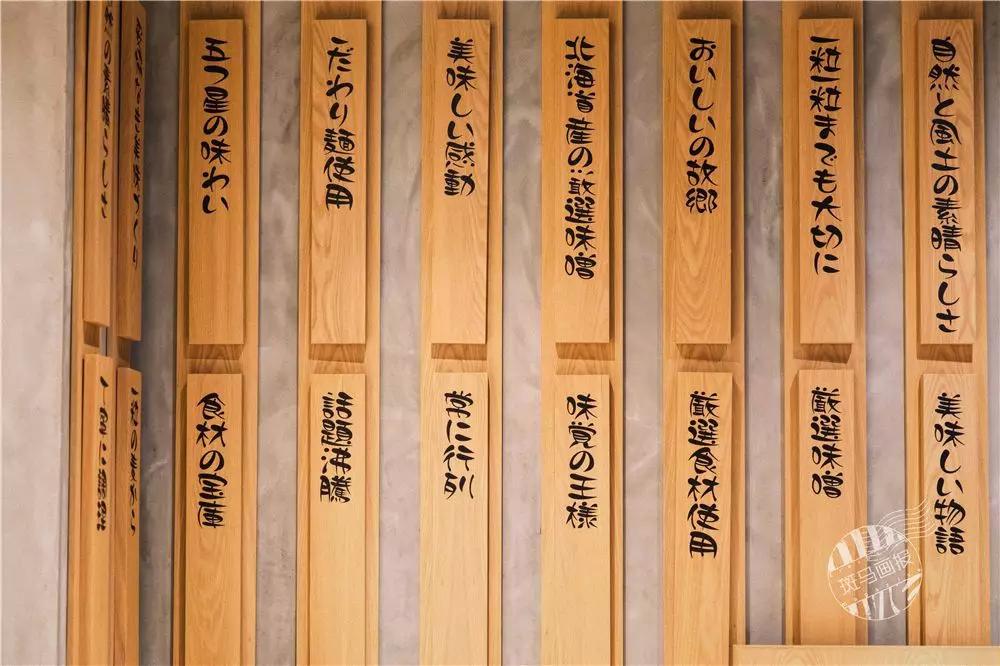 自然と風土の素晴らしさ
一粒一粒までも大切に
おいしいの故郷
北海道産の厳選味噌
美味しい感動
こだわり麺使用
五つ星の味わい
の素晴らしさ
美味しい物語
厳選味噌
厳選食材使用
味覚の王様
常に行列
話題沸騰
食材の宝庫
一粒の麦から
斑马画报